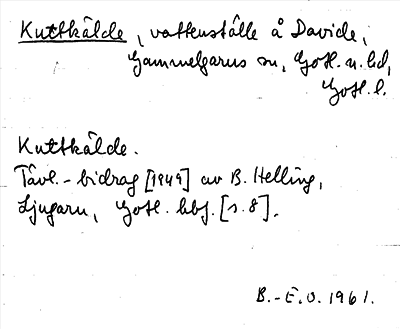 Kuttkälde, vattenställe å Davide,
Gammelgarns sn, Gotl. n. hd,
Gotl. l.
Kuttkälde.
Tävl.-bidrag [1949] av B. Helling,
Ljugarn, Gotl. hbf. [s. 8].
B.-E.O. 1961.